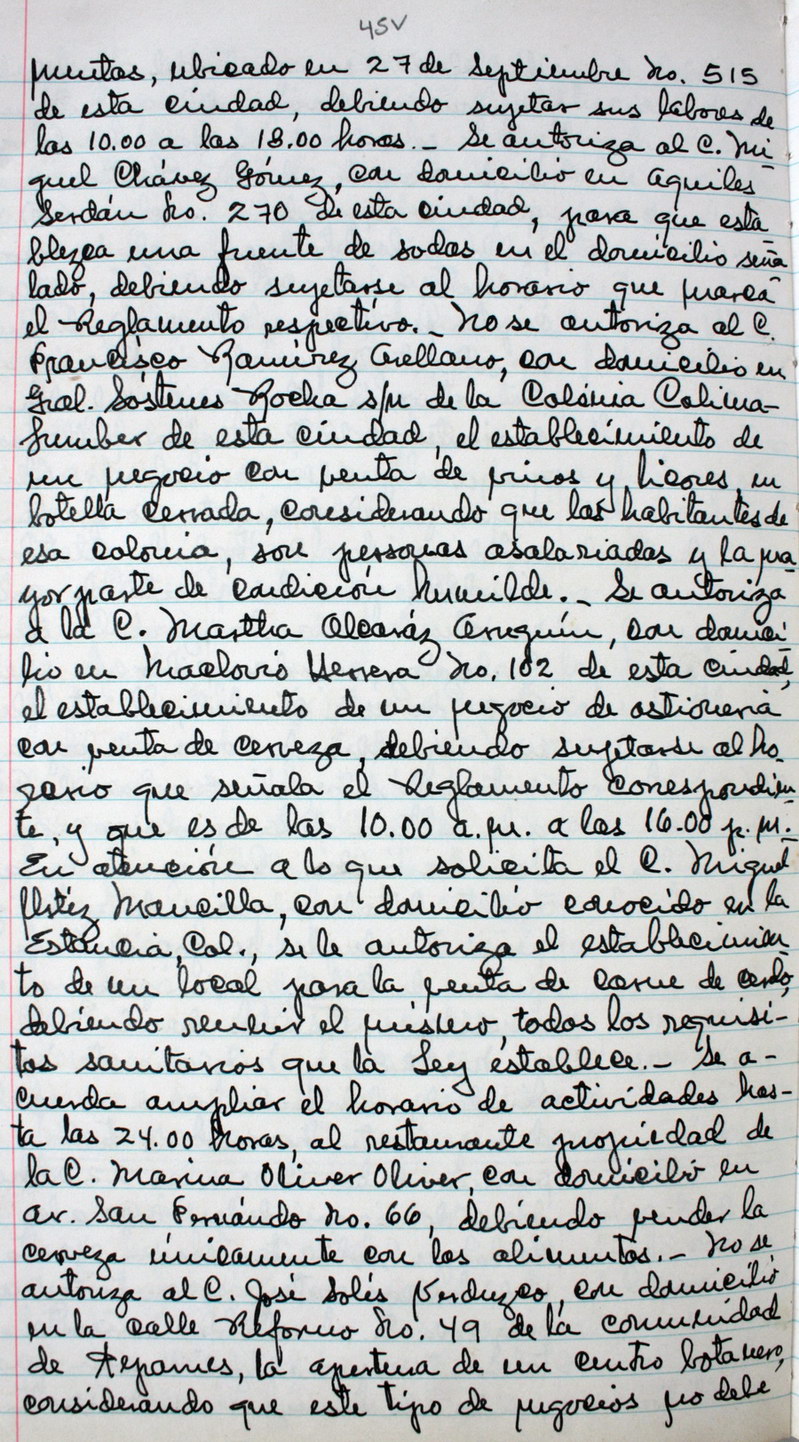 45V
puntos, ubicado en 27 de Septiembre No. 515
de esta ciudad, debiendo sujetar sus labores de
las 10.00 a las 18.00 horas.- Se autoriza al C. Mi
guel Chávez Gómez, con domicilio en Aquiles
Serdán No. 270 de esta ciudad, para que esta
blezca una fuente de sodas en el domicilio seña
lado, debiendo sujetarse al horario que marca
el Reglamento respectivo.- No se autoriza al C.
Francisco Ramírez Arellano, con domicilio en
Gral. Sóstenes Rocha s/n de la Colonia Colima-
Lumber de esta ciudad, el establecimiento de
un negocio con venta de vinos y licores en
botella cerrada, considerando que los habitantes de
esa colonia, son personas asalariadas y la ma
yor parte de condición humilde.- Se autoriza
a la C. Martha Alcaráz Aruguín, con domici
lio en Maclovio Herrera No. 102 de esta ciudad,
el establecimiento de un negocio de ostionería
con venta de cerveza, debiendo sujetarse al ho-
rario que señala el Reglamento correspondien
te, y que es de las 10.00 a.m. a las 16.00 p.m.-
En atención a lo que solicita el C. Miguel
Mancilla, con domicilio conocido en la
Estancia, Col., se le autoriza el establecimien
to de un local para la venta de carne de cerdo,
debiendo reunir el mismo, todos los requisi-
tos sanitarios que la Ley establece.- Se a-
cuerda ampliar el horario de actividades has-
ta las 24.00 horas, al restaurante propiedad de
la C. Marina Oliver Oliver, con domicilio en
av. San Fernándo No. 66, debiendo vender la
cerveza únicamente con los alimentos.- No se
autoriza al C. José Solís Verduzco, con domicilio
en la calle Reforma No. 49 de la comunidad
de Tepames, la apertura de un centro botanero,
considerando que este tipo de negocios no debe